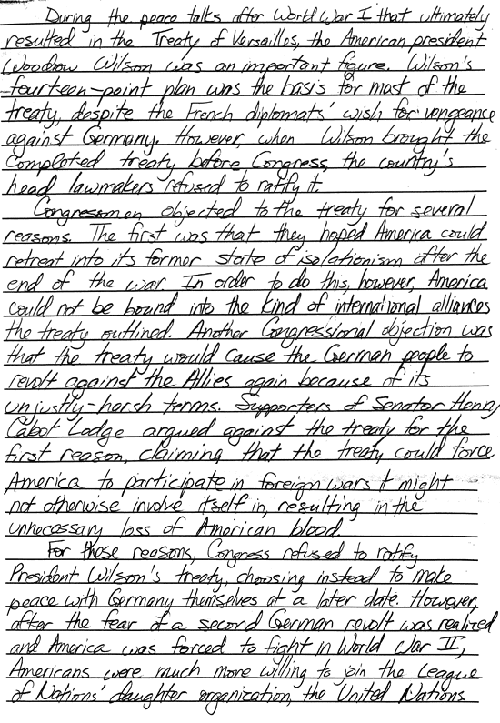 During the peace talks after World War I that ultimately
resulted in the Treaty of Versailles, the American president
Woodrow Wilson was an important figure. Wilson's
fourteen-point plan was the basis for most of the
treaty, despite the French diplomats' wish for vengeance
against Germany. However, when Wilson brought the
completed treaty before Congress, the country's
head lawmakers refused to ratify it.
Congressmen objected to the treaty for several
reasons. The first was that they hoped America could
retreat into its former state of isolationism after the
end of the war. In order to do this, however, America
could not be bound into the kind of international alliances
the treaty outlined. Another Congressional objection was
that the treaty would cause the German people to
revolt against the Allies again because of its
unjustly-harsh terms. Supporters of Senator Henry
Cabot Lodge argued against the treaty for the
first reason, claiming that the treaty could force
America to participate in foreign wars it might
not otherwise involve itself in, resulting in the
unnecessary loss of American blood.
For those reasons, Congress refused to ratify
President Wilson's treaty, choosing instead to make
peace with Germany themselves at a later date. However,
after the fear of a second German revolt was realized
and America was forced to fight in World War II,
Americans were much more willing to join the League
of Nations' daughter organization, the United Nations.